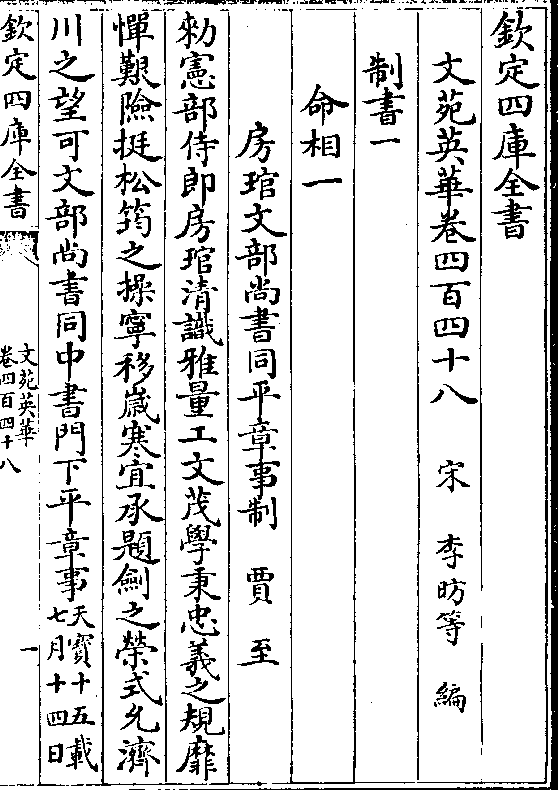 欽定四庫全書
文苑英華卷四百四十八　宋　李昉等　編
制書一
命相一
房琯文部尚書同平章事制　賈　至
勑憲部侍郎房琯清識雅量工文茂學秉忠義之規靡
憚艱險挺松筠之操寧移嵗寒宜承題劍之榮式允濟
川之望可文部尚書同中書門下平章事天寶十五載
七月十四日
欽定四庫全書
文苑英華
卷四百四十八
一